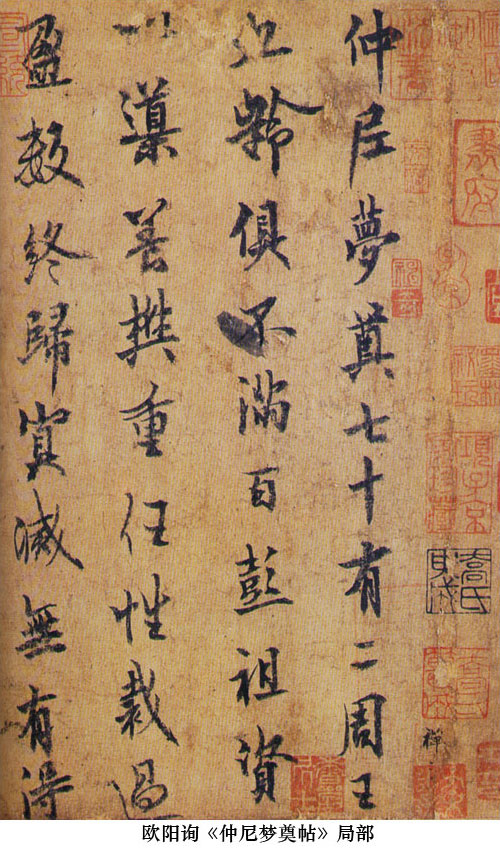 仲尼夢奠七十有二周王
九齡俱不滿百彭祖資
以導養樊重任性裁過
盈數終歸冥滅無有得
項子京家珍藏
欧阳询《仲尼梦奠帖》局部